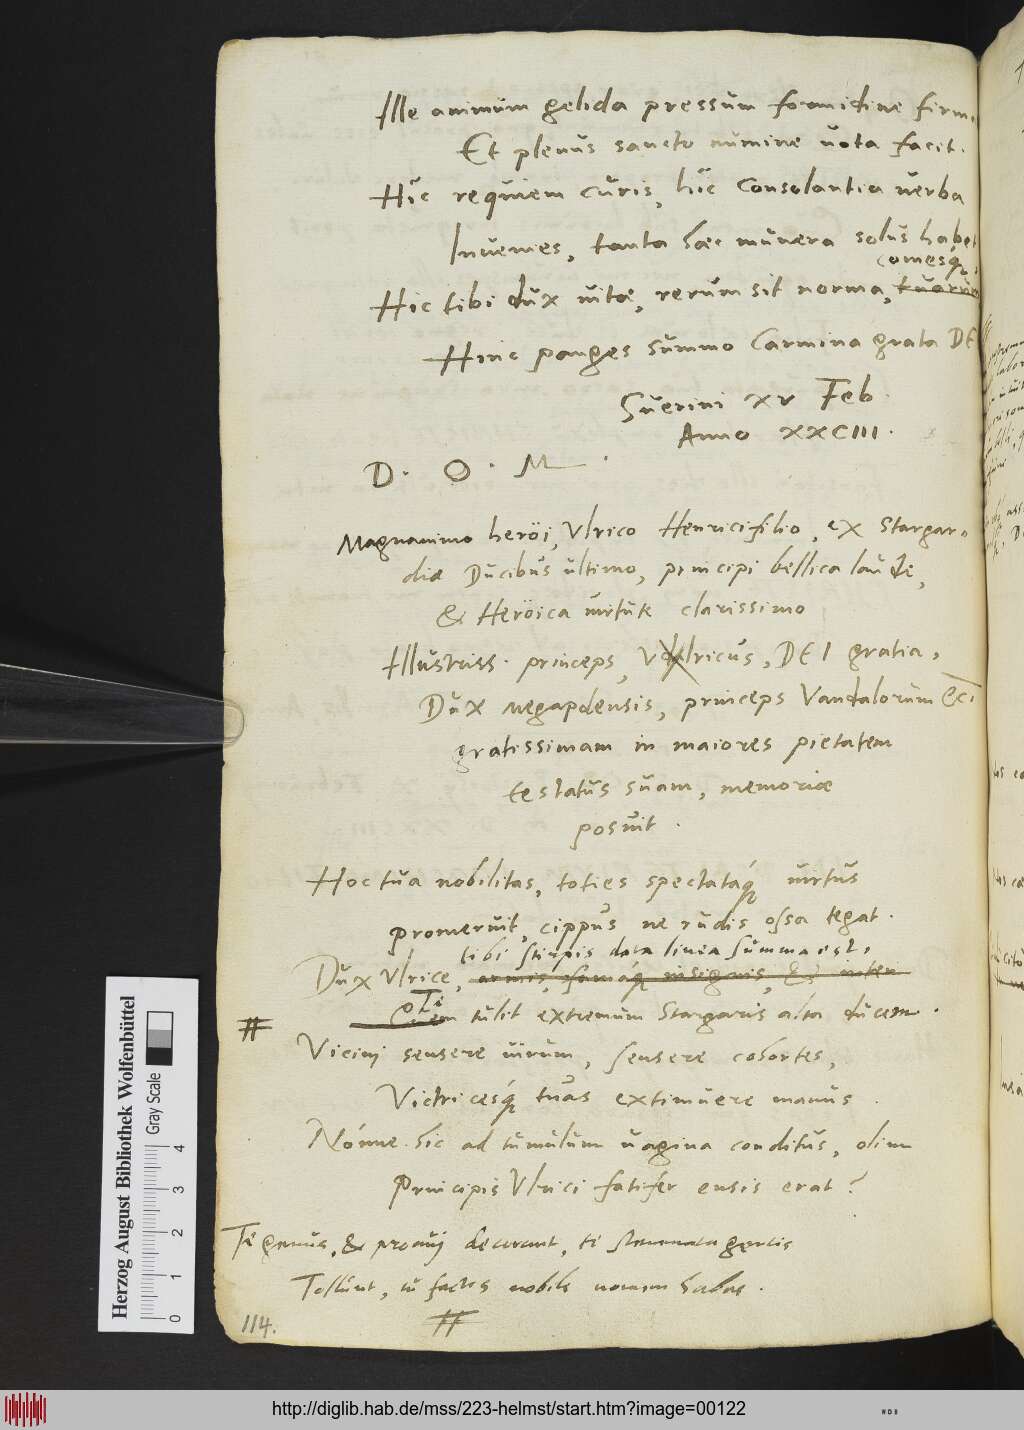 Ille animum gelida pressum formidine firm
Et plenus sancto numine uota facit.
Hîc requiem curis, hîc consolantia uerba
Inuenies, tanta haec munera solus habet
comesq́,
Hic tibi dux uitae, rerum sit norma,
Hinc panges summo Carmina grata DE
Suerini XV Feb.
Anno XXCIII.
D. O. M.
Magnanimo heröi, Vlrico Henricifilio, ex Stargar
diae Ducibus ultimo, principi bellica laude,
& Heröica uirtute clarissimo
Illustriss. princeps, Vdalricus, DEI gratia,
Dux Megapolensis, princeps Vandalorum &c̄
gratissimam in maiores pietatem
testatus suam, memoriae
posuit.
Hoc tua nobilitas, toties spectataq́ue uirtus
promeruit, cippus ne rudis ossa tegat.
tibi stirpis data linea summa est,
Dux Vlrice, armis, famaq́ue insignis, &
Te
tulit extremum Stargaris alta ducem.
#
Vicini sensere uirum, sensere cohortes,
Victricesq́ue tuas extimuere manus.
Nónne hic ad tumulum uagina conditus, olim
Principis Vlrici fatifer ensis erat?
Te genus, & proaui decorant, te stemmata gentis
Tollunt, tu factis nobile nomen habes.
#
114.
Herzog August Bibliothek Wolfenbüttel
Gray Scale
0 1 2 3 4
http://diglib.hab.de/mss/223-helmst/start.htm?image=00122